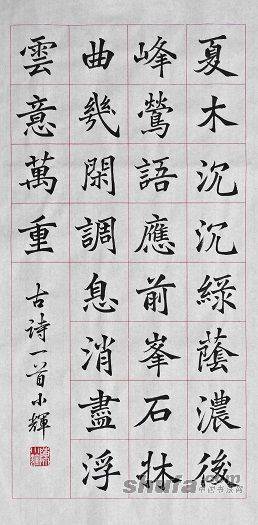 夏木沉沉綠蔭濃後
峰鶯語應前峯石牀
曲幾閑調息消盡浮
雲意萬重
古诗一首小輝
shufa.com
中国书法网